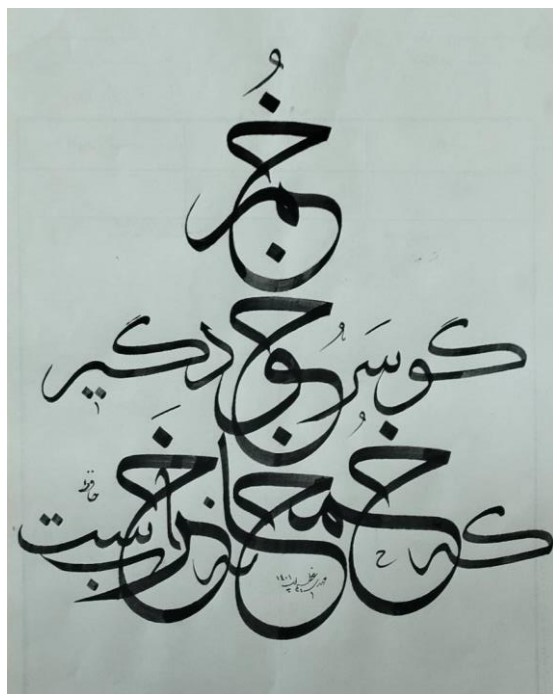 خُم
گو سَر خُود گیر
که خُمخانه خَراب است
حافظ
۱۴۰۱